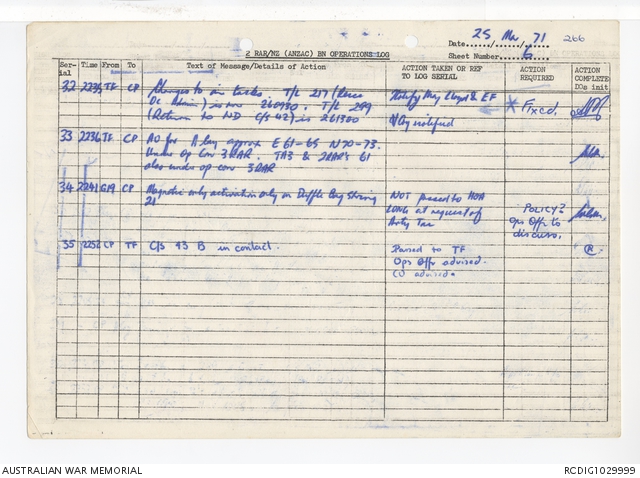 25 Mar 71 266
Date
2 RAR/NZ (ANZAC) BN OPERATIONS LOG
Sheet Number 6
Serial Time From To Text of Message/Details of Action ACTION TAKEN OR REF TO LOG SERIAL ACTION REQUIRED ACTION COMPLETE DOs init
32 2235 TF CP Changes to air tasks. T/L 297
is now 260930. T/L 299
(Return to ND C/S 42) is 261300
Notify Maj Lloyd & EF
notified
* Fixed.
33 2236 TF CP AO for A Coy approx E 61-65 N 70-73.
Under op con 3RAR. TA3 & 2RAR's 61
also under op con 3RAR
34 2241 CP Magnetic only activation only on Duffle Bag String
21
NOT passed to HOA
LONG at request of
Arty Tac
POLICY?
Ops Offr to
discuss.
35 2252 CP TF C/S 43 B in contact.
Passed to TF
Ops Offr advised.
CO advised.
AUSTRALIAN WAR MEMORIAL
RCDIG1029999